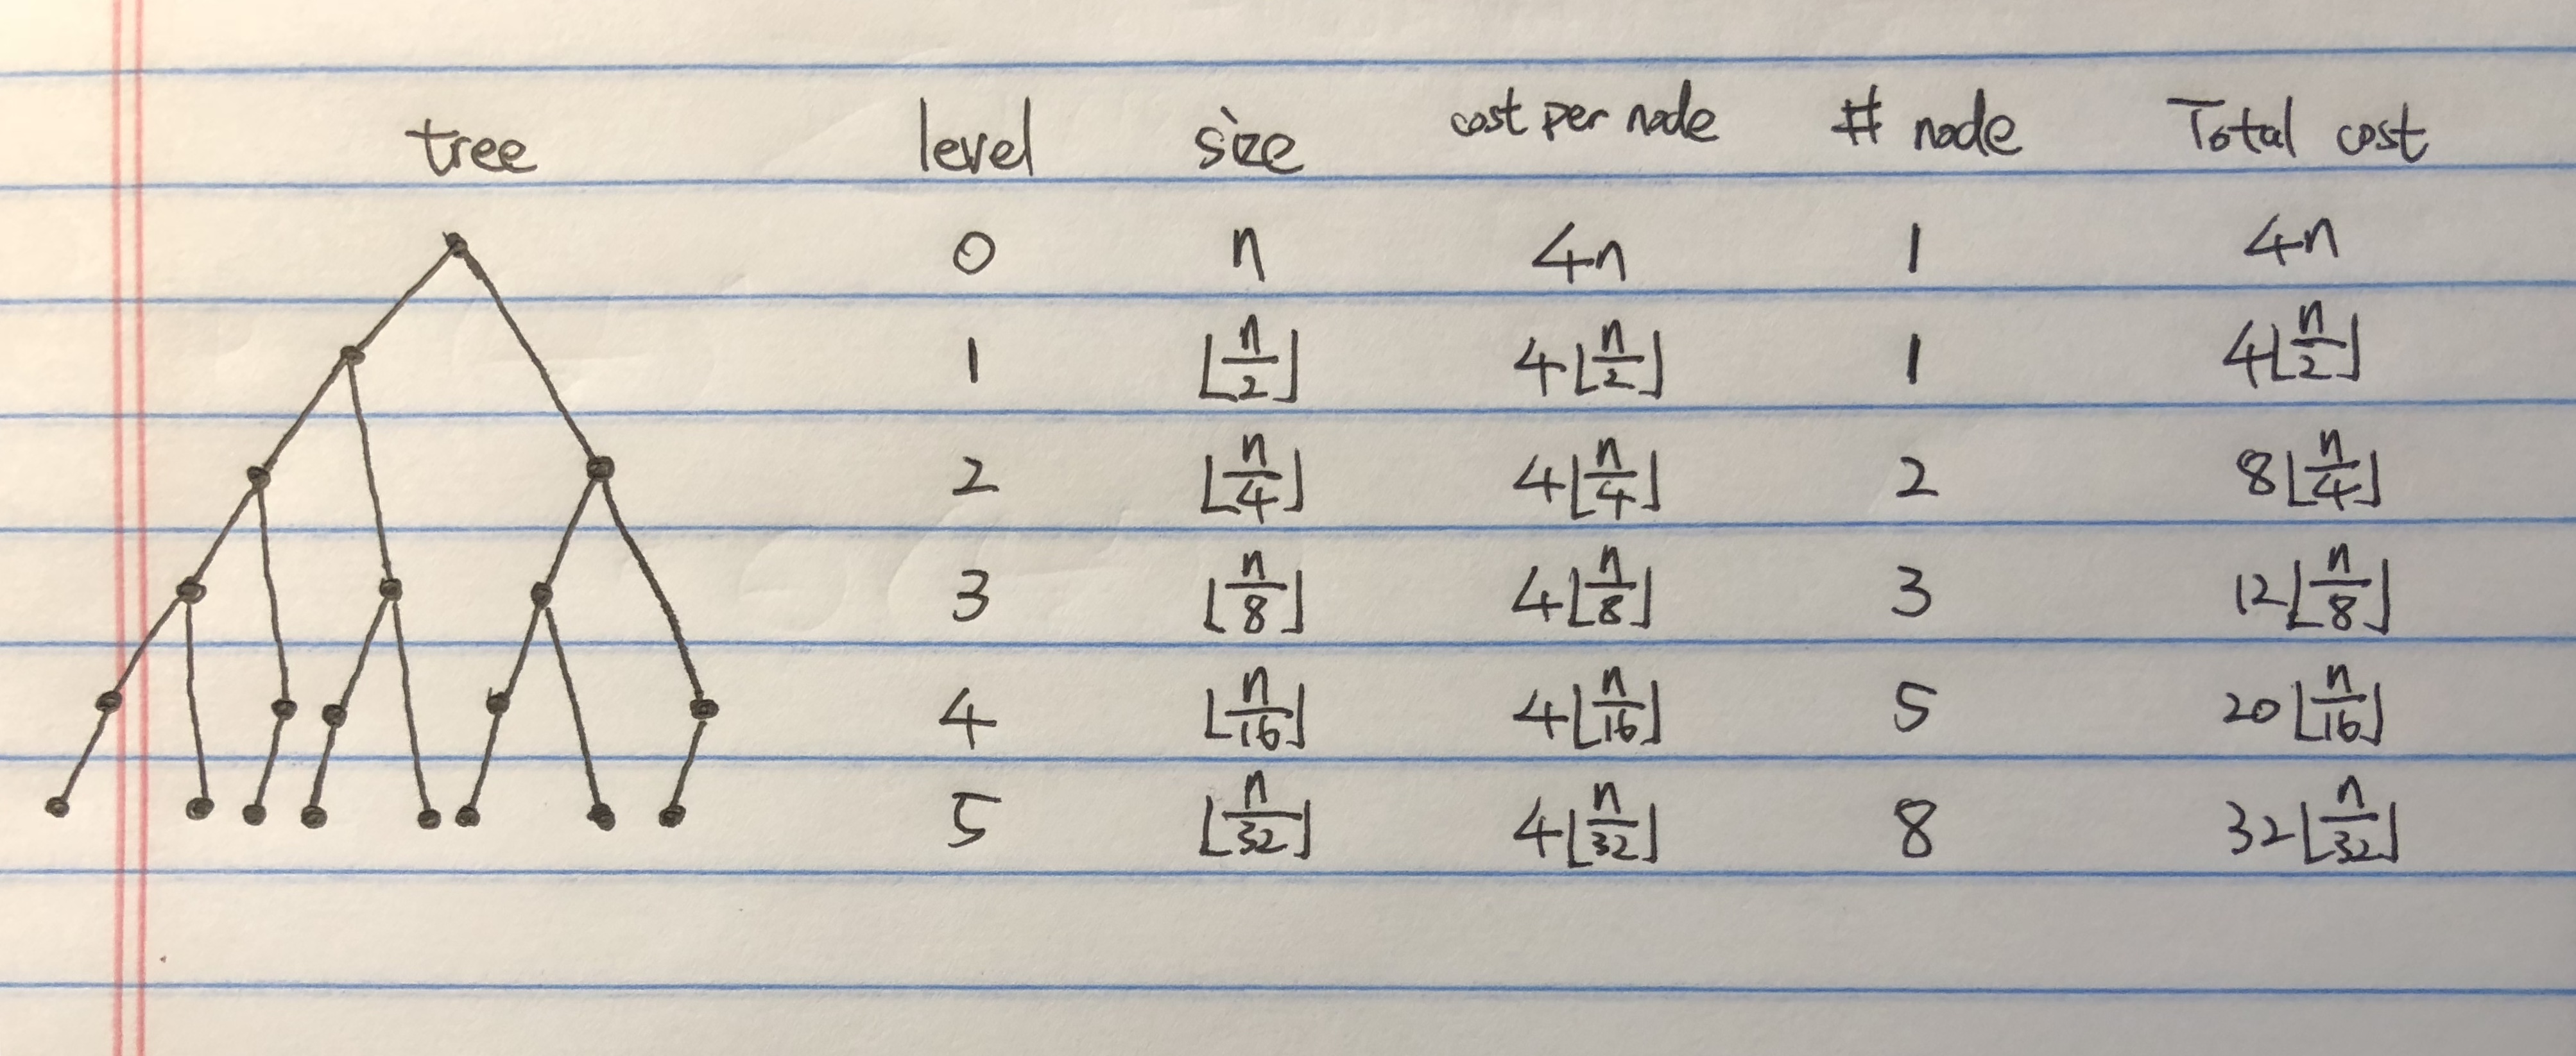 tree level size cost per node # node Total cost
0 n 4n 1 4n
1 ⌊n/2⌋ 4⌊n/2⌋ 1 4⌊n/2⌋
2 ⌊n/4⌋ 4⌊n/4⌋ 2 8⌊n/4⌋
3 ⌊n/8⌋ 4⌊n/8⌋ 3 12⌊n/8⌋
4 ⌊n/16⌋ 4⌊n/16⌋ 5 20⌊n/16⌋
5 ⌊n/32⌋ 4⌊n/32⌋ 8 32⌊n/32⌋